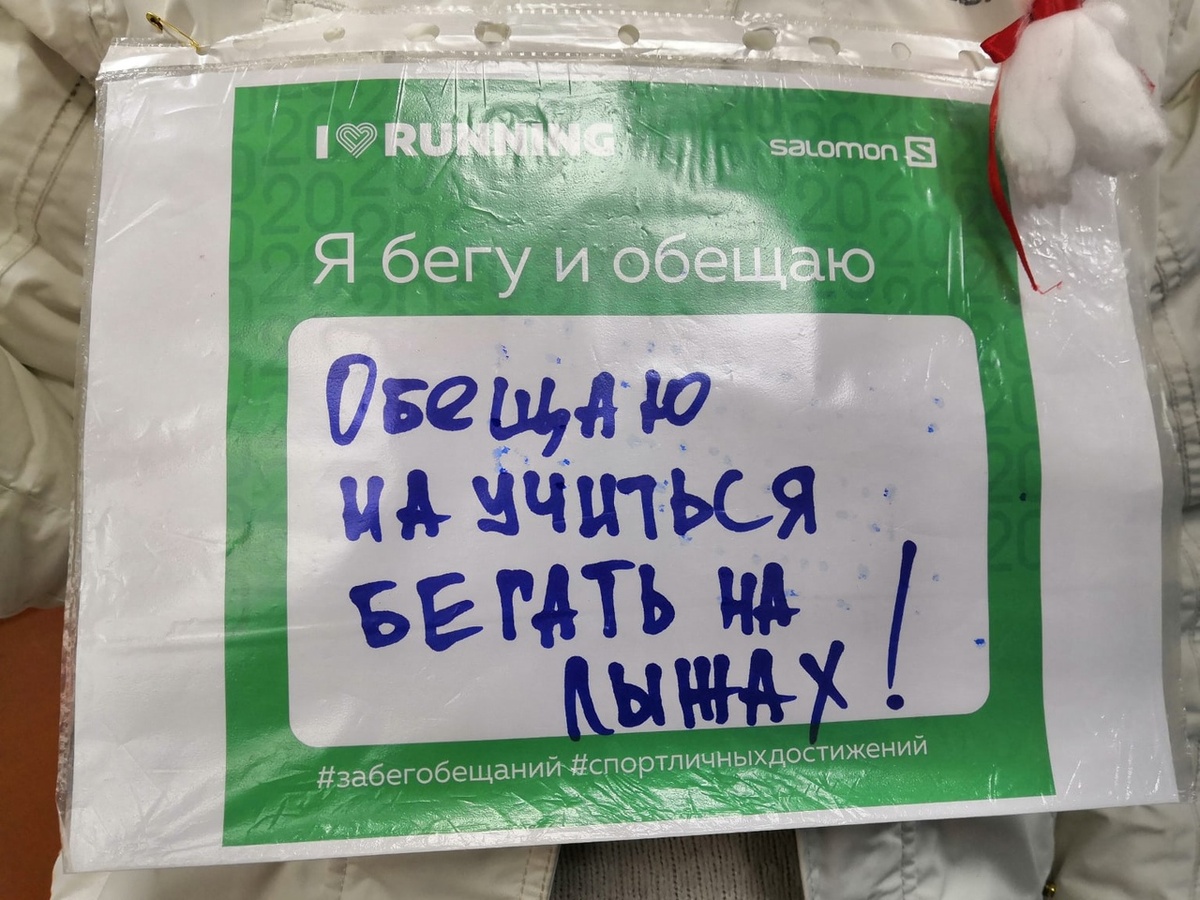 I RUNNING
salomon S
Я бегу и обещаю
Обещаю
на учиться
БЕГАТЬ на
лыжах!
#забегобещаний #спортличныхдостижений